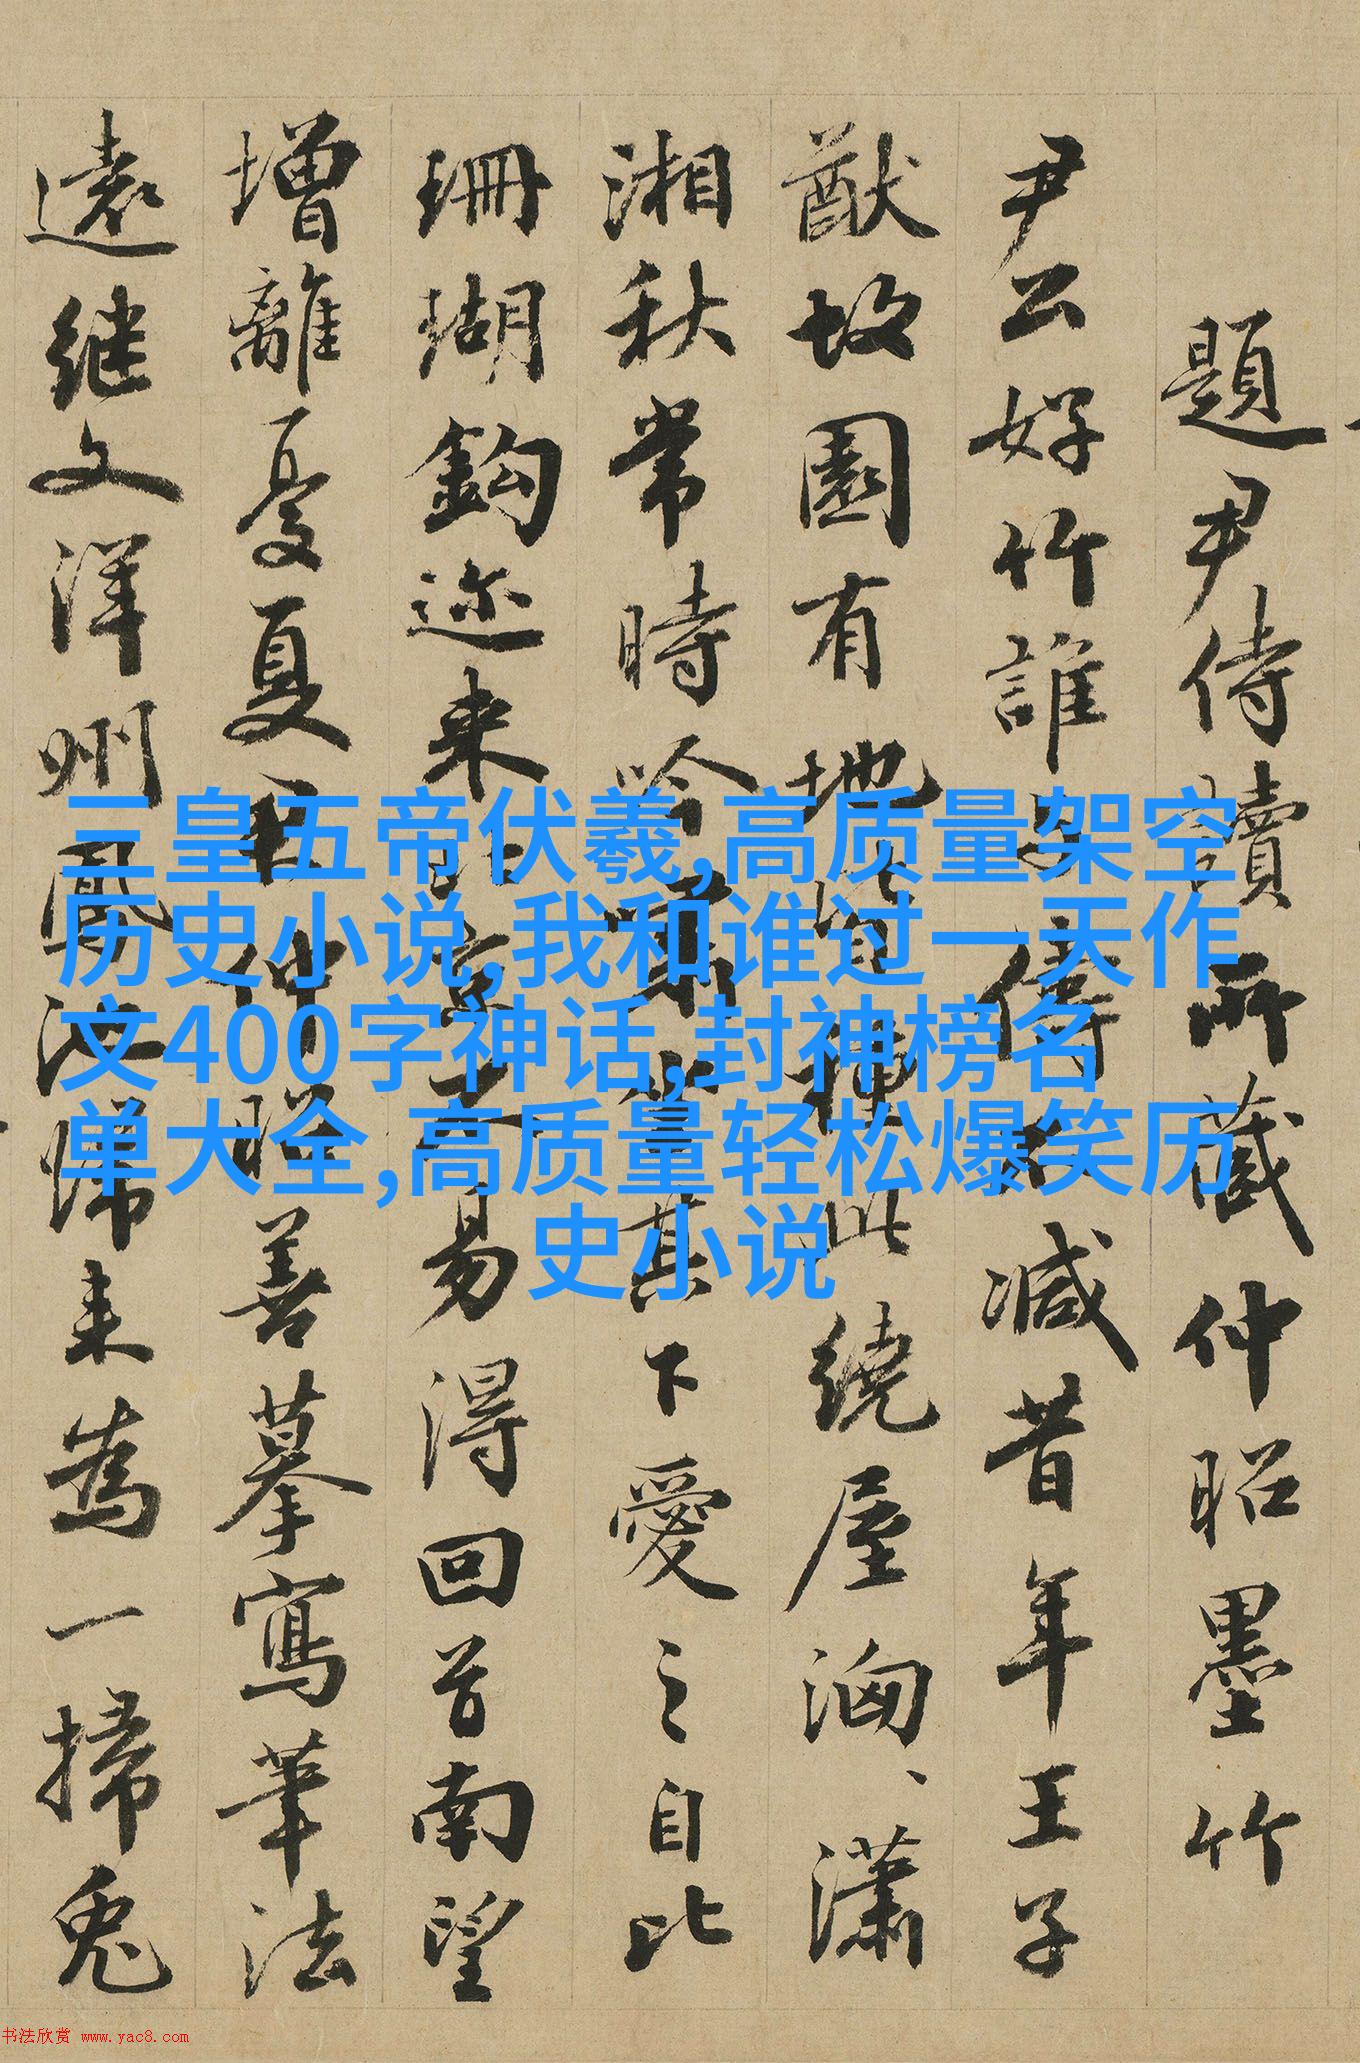 題尹侍讀所藏仲昭墨竹
尹公好竹誰儔減昔年王子
猷故園有地皆種此繞屋瀟
湘秋常時吟嘯坐其下愛之自比
珊瑚鈎迩来京易得回首南望
增離憂夏君仲昭善摹寫筆法
遠继文洋州鳳池歸来為一掃兔
三皇五帝伏羲,高质量架空
历史小说,我和谁过一天作
文400字神话,封神榜名
单大全,高质量轻松爆笑历
史小说
书法欣赏 www.yac8.com